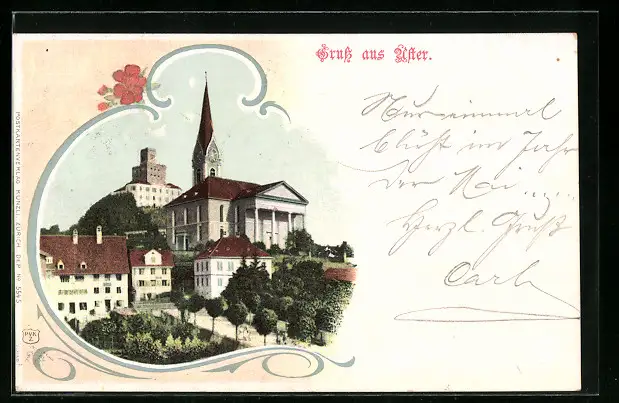 Gruß aus Uster.
Nur einmal
blüht im Jahr
der Mai .....
Herzl. Gruß
Carl
POSTKARTENVERLAG KÜNZLI, ZÜRICH. DEP. No. 5545